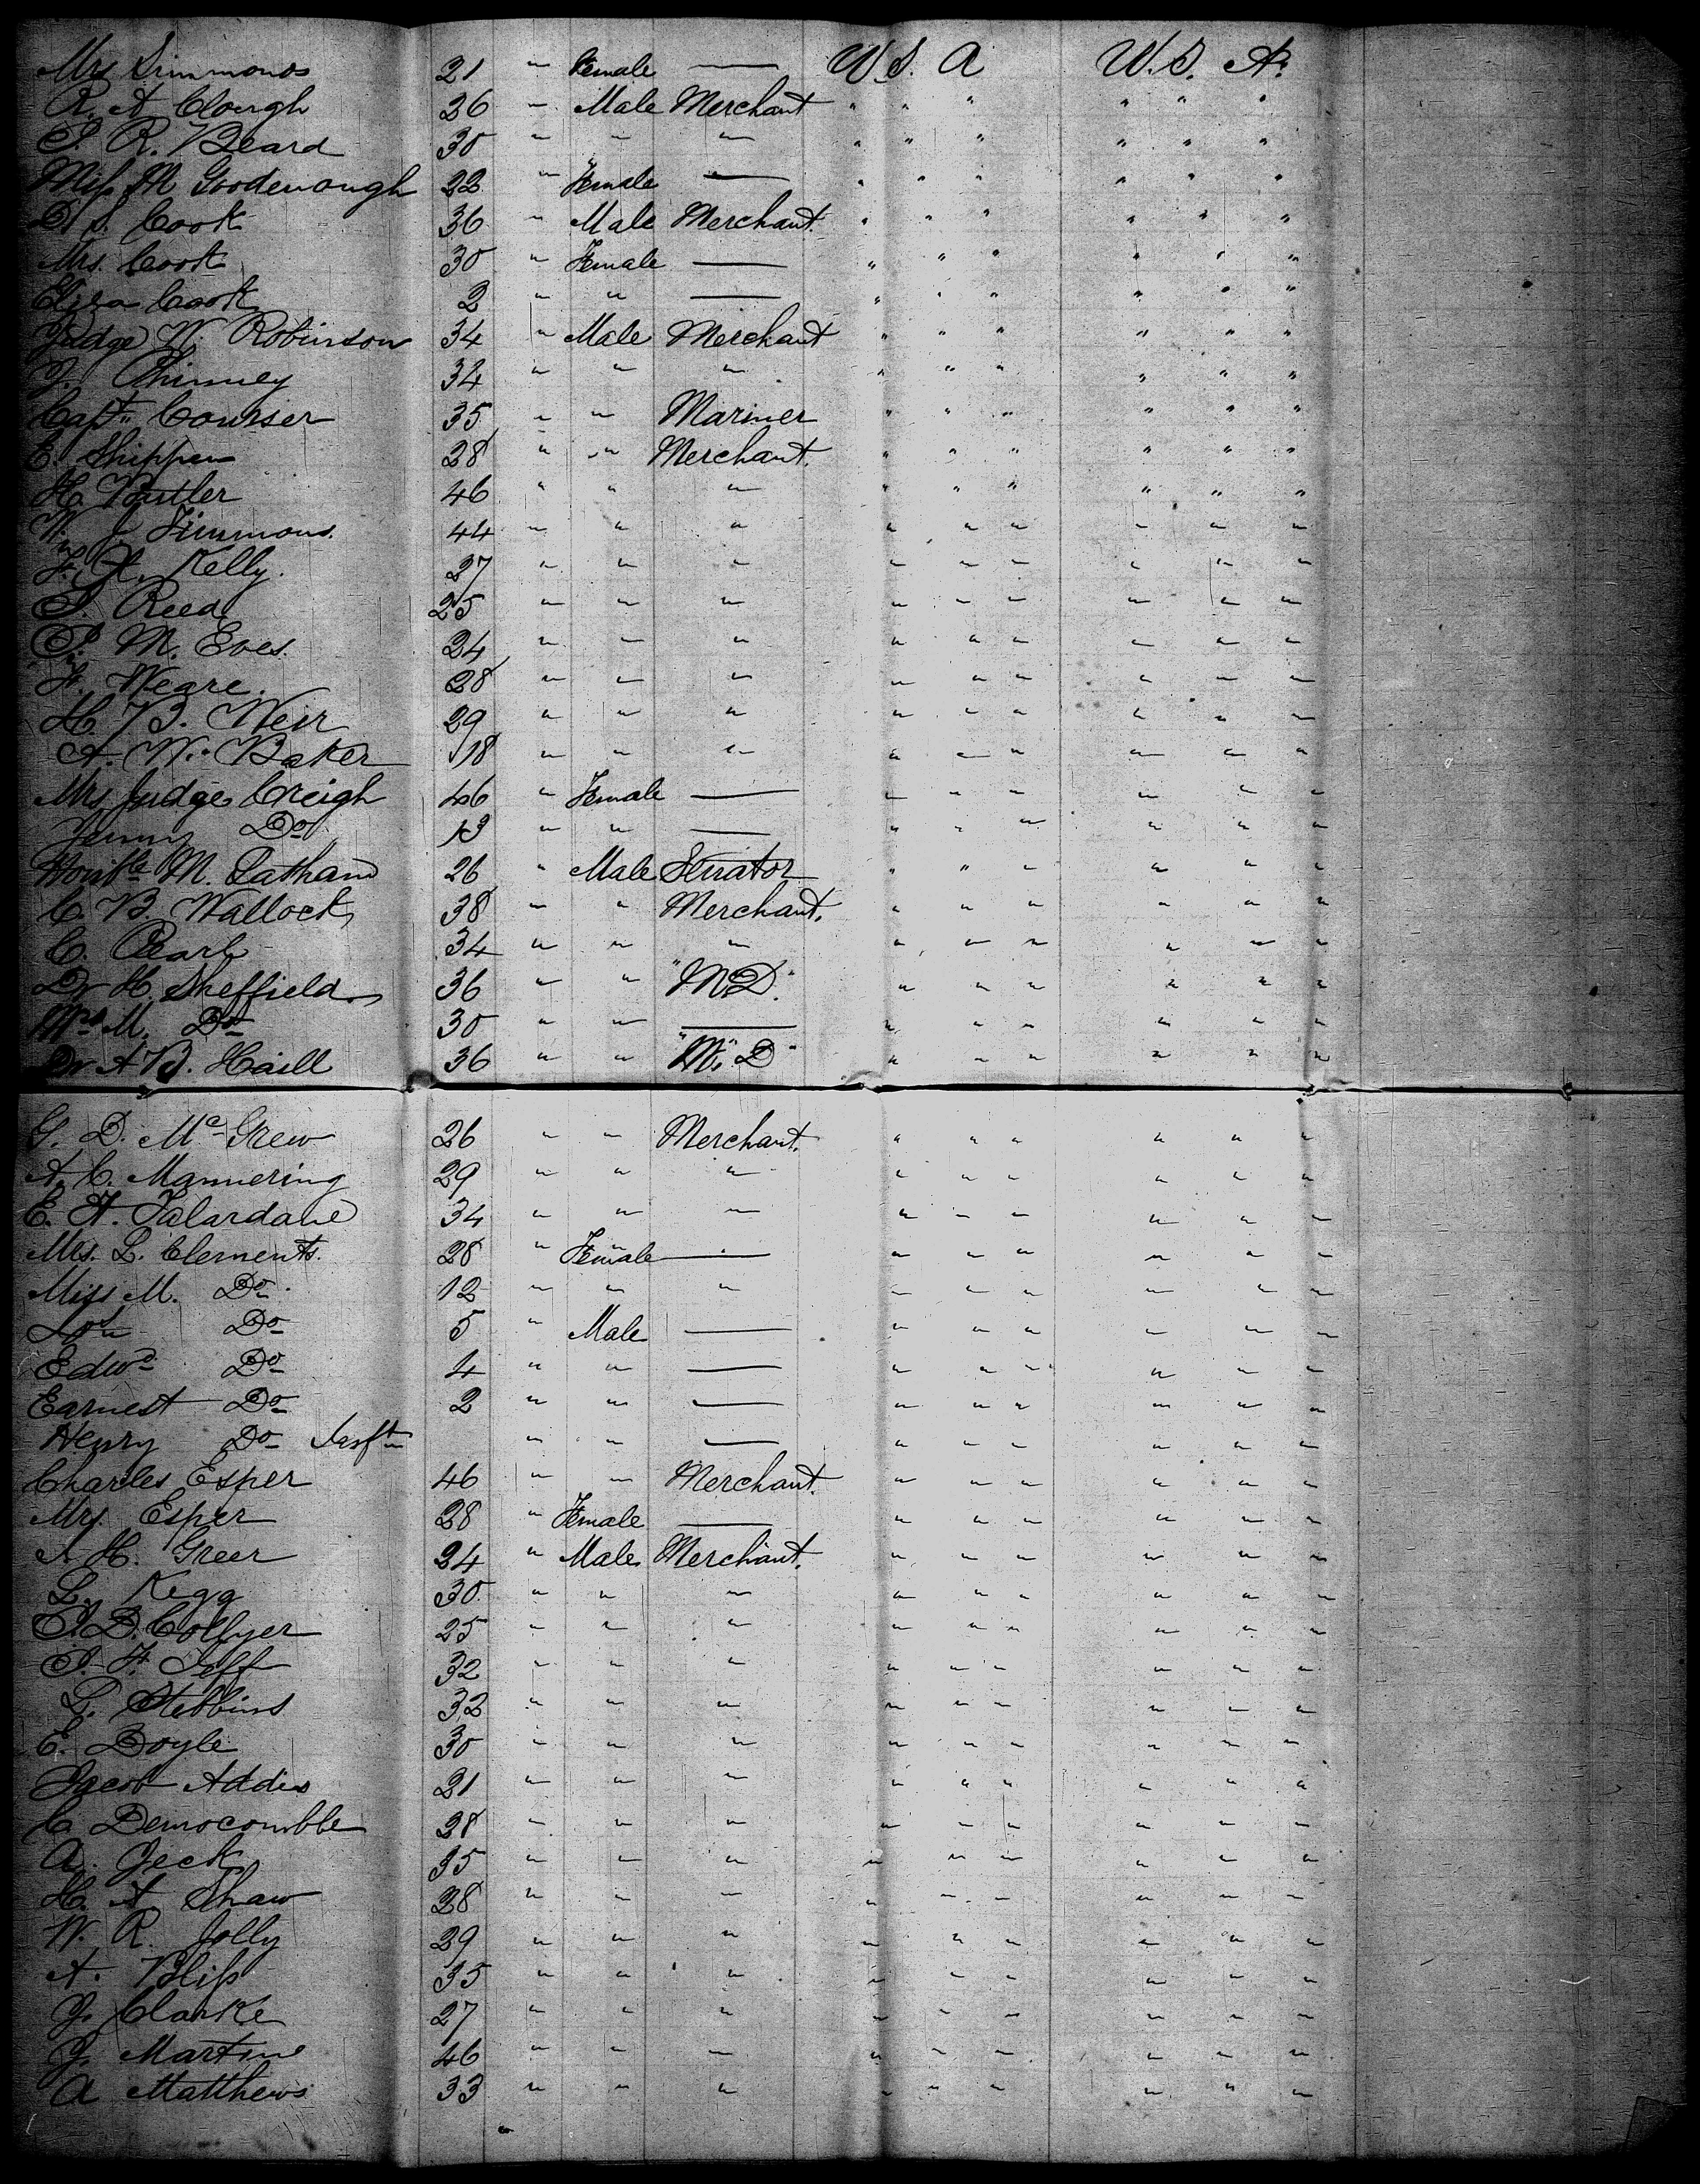 Mrs Simmonds 21 " Female — U.S. A U.S. A.
R. A Clough 26 " Male Merchant " " " " " "
S. R. Beard 30 " " " " " " " " "
Miss M Goodenough 22 " Female — " " " " " "
D. S. Cook 36 " Male Merchant. " " " " " "
Mrs. Cook 30 " Female — " " " " " "
Eliza Cook 2 " " — " " " " " "
Judge W. Robinson 34 " Male Merchant " " " " " "
J. Phinney 34 " " " " " " " " "
Capt. Coursser 35 " " Mariner " " " " " "
E. Shippen 28 " " Merchant. " " " " " "
H. Butler 46 " " " " " " " " "
W. J Timmons. 44 " " " " " " " " "
F. A. Kelly. 27 " " " " " " " " "
S. Reed 25 " " " " " " " " "
S. M. Eves. 24 " " " " " " " " "
F. Weare. 28 " " " " " " " " "
H. B. Weir 29 " " " " " " " " "
A. W. Baker 18 " " " " " " " " "
Mrs Judge Creigh 46 " Female — " " " " " "
Jenny Do 13 " " — " " " " " "
Honble M. Latham 26 " Male Senator " " " " " "
C. B. Wallock 38 " " Merchant. " " " " " "
C. Pearl 34 " " " " " " " " "
Dr H. Sheffield 36 " " "M.D." " " " " " "
Mrs M. Do 30 " " — " " " " " "
Dr A B. Haill 36 " " "M. D" " " " " " "
G. D. McGrew 26 " " Merchant. " " " " " "
A. C. Mannering 29 " " " " " " " " "
E. H. Talardane 34 " " " " " " " " "
Mrs. L. Clements. 28 " Female — " " " " " "
Miss M. Do. 12 " " " " " " " " "
Do 5 " Male — " " " " " "
Edwd Do 4 " " — " " " " " "
Earnest Do 2 " " — " " " " " "
Henry Do Inft " " — " " " " " "
Charles Esper 46 " " Merchant. " " " " " "
Mrs. Esper 28 " Female — " " " " " "
A H. Greer 24 " Male Merchant. " " " " " "
L. Kegg 30 " " " " " " " " "
S. D. Collyer 25 " " " " " " " " "
S. F. Jeff 32 " " " " " " " " "
L. Stebbins 32 " " " " " " " " "
E. Doyle 30 " " " " " " " " "
Jacob Addis 21 " " " " " " " " "
C Democomble 28 " " " " " " " " "
A. Jeck 35 " " " " " " " " "
H. A Shaw 28 " " " " " " " " "
W. R. Jolly 29 " " " " " " " " "
A. Bliss 35 " " " " " " " " "
J. Clarke 27 " " " " " " " " "
J. Martine 46 " " " " " " " " "
A Matthews 33 " " " " " " " " "